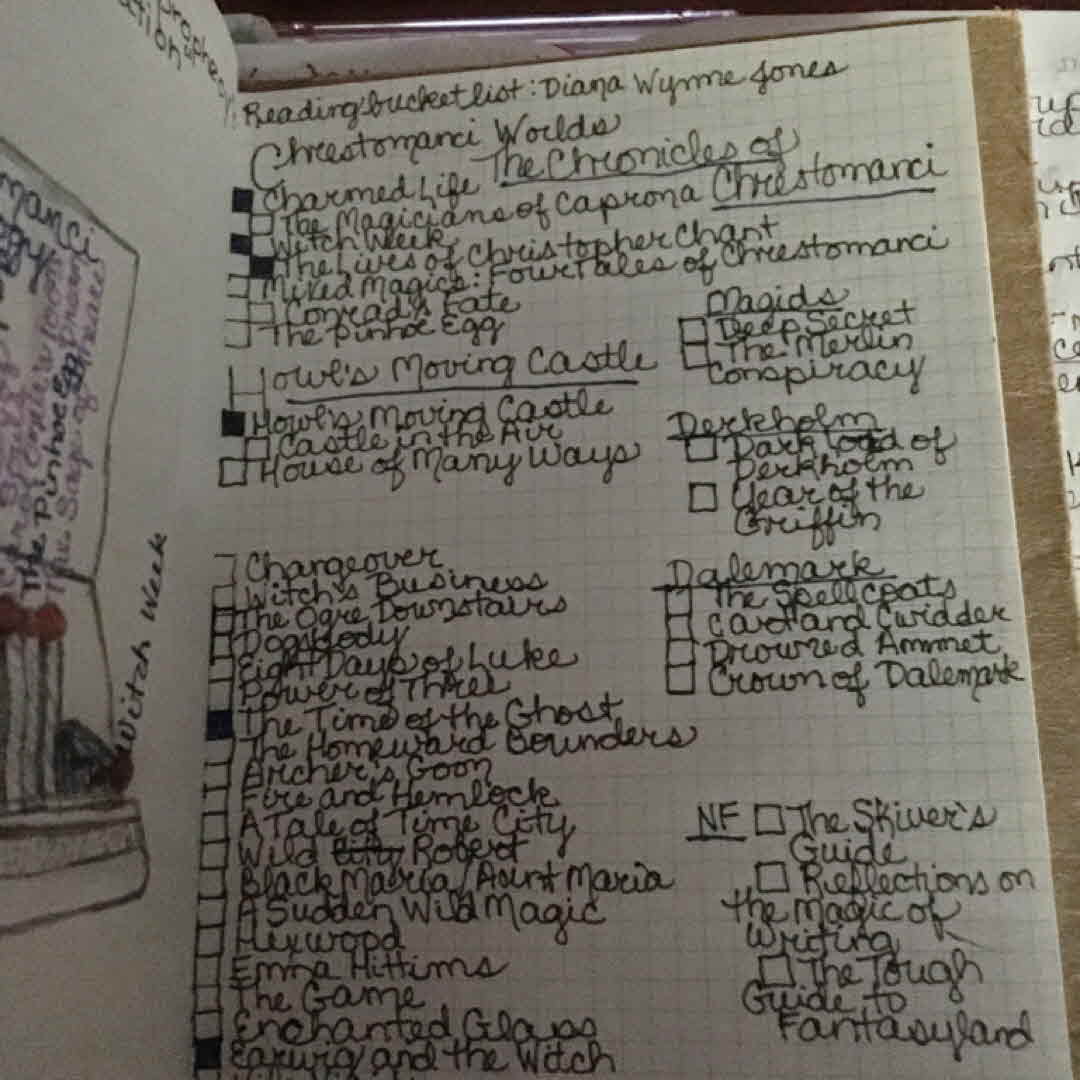 Reading bucket list: Diana Wynne Jones
Chrestomanci Worlds
The Chronicles of
Chrestomanci
Charmed Life
The Magicians of Caprona
Witch Week
The Lives of Christopher Chant
Mixed Magics: Four Tales of Chrestomanci
Conrad's Fate
The Pinhoe Egg
Magids
Deep Secret
The Merlin
Conspiracy
Howl's Moving Castle
Howl's Moving Castle
Castle in the Air
House of Many Ways
Derkholm
Dark Lord of
Derkholm
Year of the
Griffin
Changeover
Witch's Business
The Ogre Downstairs
Dogsbody
Eight Days of Luke
Power of Three
The Time of the Ghost
The Homeward Bounders
Archer's Goon
Fire and Hemlock
A Tale of Time City
Wild City Robert
Black Maria/Aunt Maria
A Sudden Wild Magic
Hexwood
Emma Hittims
The Game
Enchanted Glass
Earwig and the Witch
Dalemark
The Spellcoats
Cart and Cwidder
Drowned Ammet
Crown of Dalemark
NF The Skiver's
Guide
Reflections on
the Magic of
Writing
The Tough
Guide to
Fantasyland
The Pinhoe Egg
Witch Week